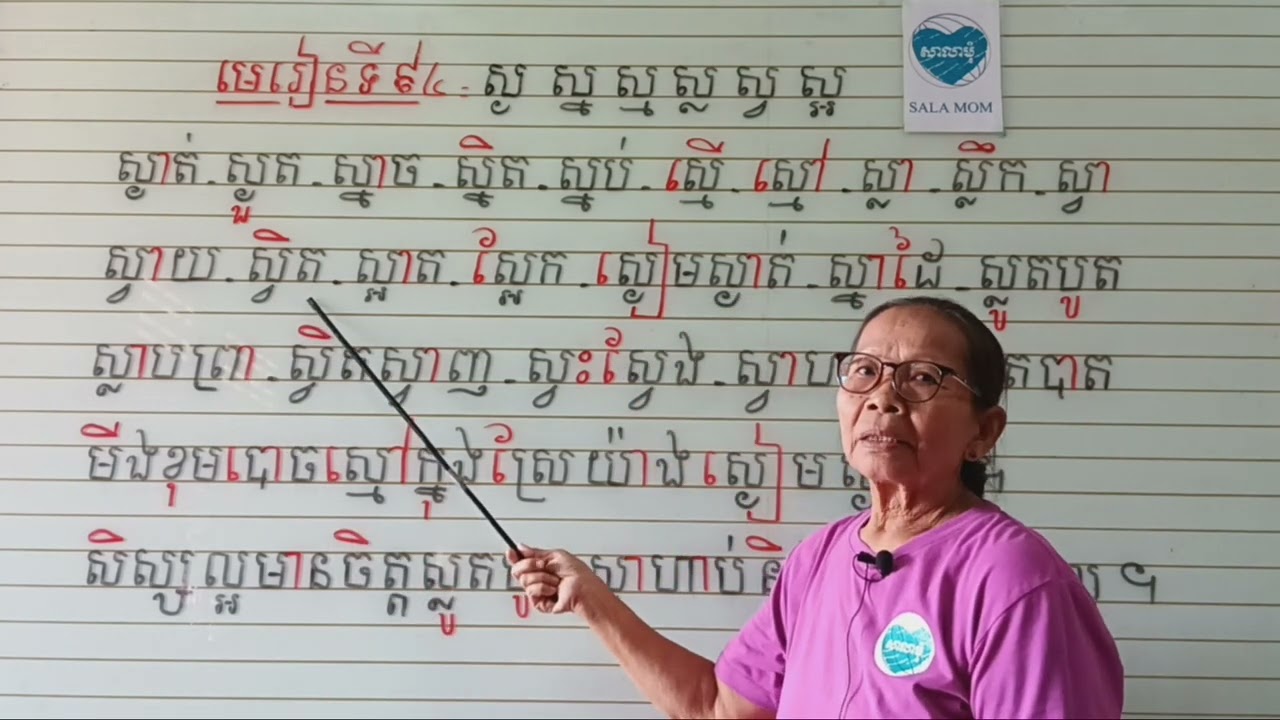 មេរៀនទី ៩៤ - ស្ង ស្ន ស្ម ស្ល ស្វ ស្អ
សាលាមុំ
SALA MOM
ស្ងាត់ - ស្ងួត - ស្នាច - ស្និត - ស្នប់ - ស្មើ - ស្មៅ - ស្លា - ស្លឹក - ស្វា
ស្វាយ - ស្វិត - ស្អាត - ស្អែក - ស្ងៀមស្ងាត់ - ស្នាដៃ - ស្លូតបូត
ស្លាបព្រា - ស្វិតស្វាញ - ស្វះស្វែង -
មីងខុមបោចស្មៅក្នុងស្រែយ៉ាងស្ងៀម
សិស្សល្អមានចិត្តស្លូត ។
សាលាមុំ